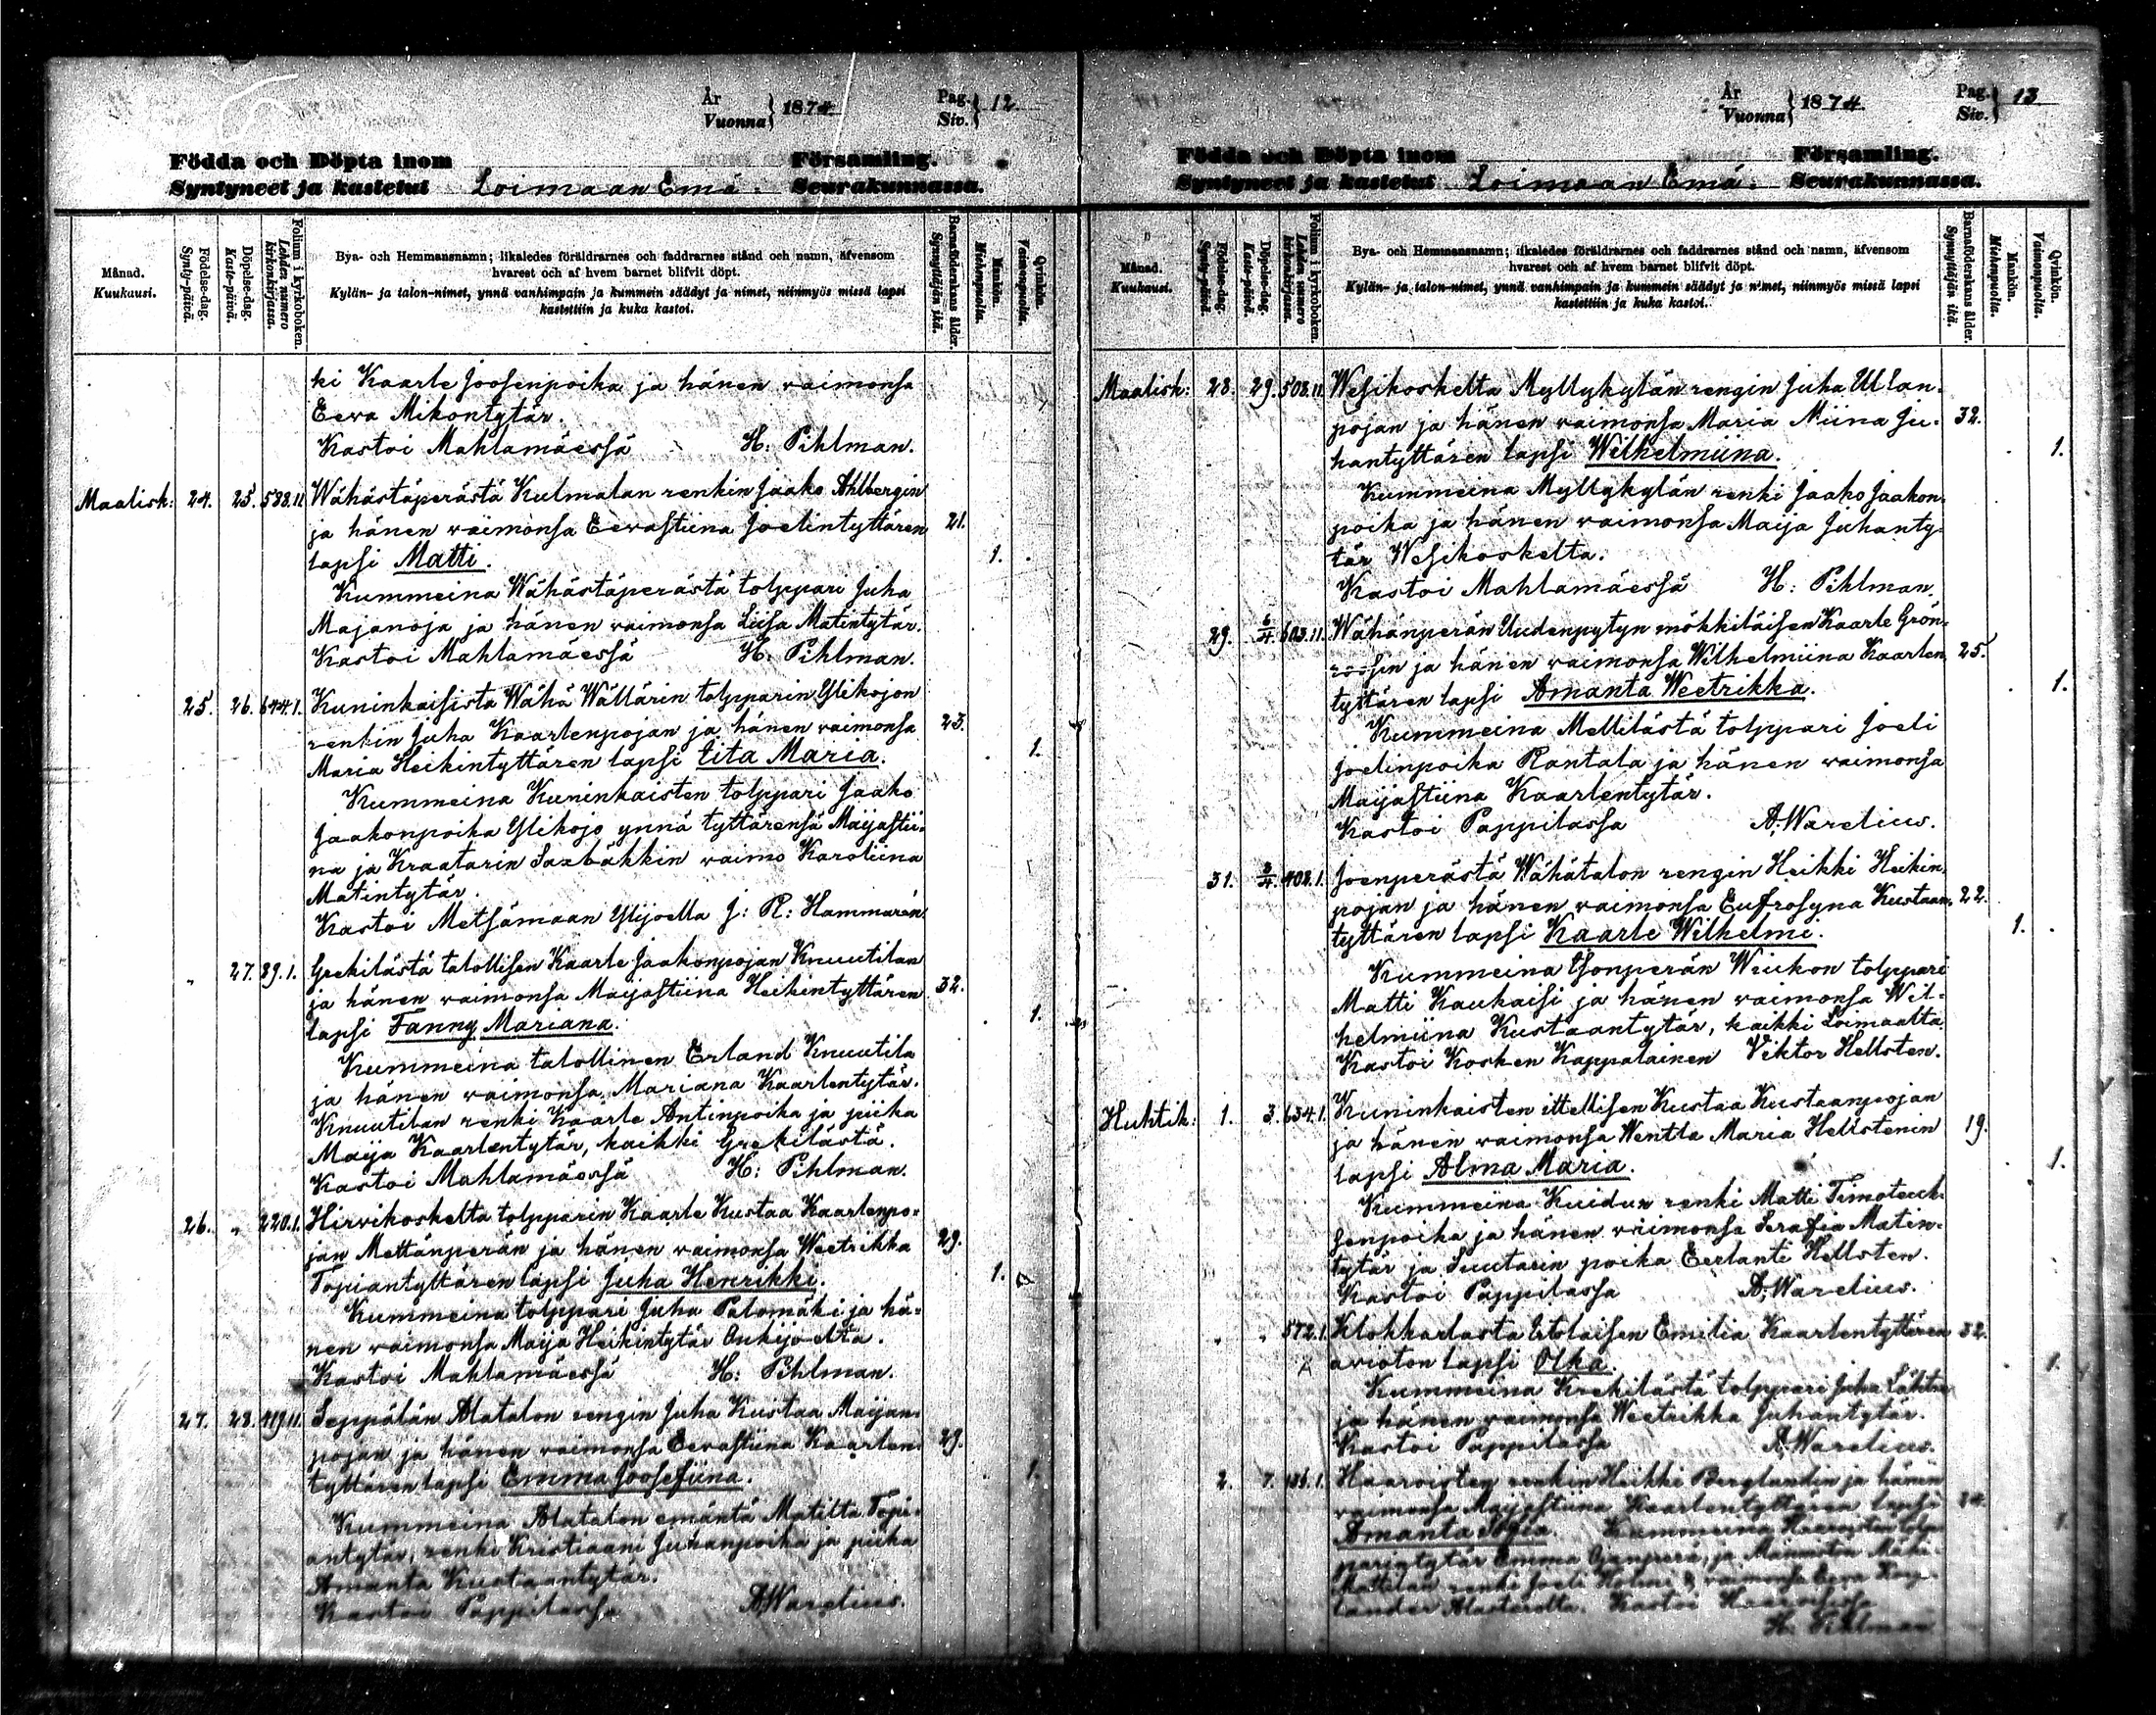 År
Vuonna } 1874
Pag.
Siv. } 12
Födda och Döpta inom Församling.
Syntyneet ja kastetut Loimaan Emä. Seurakunnassa.
Månad.
Kuukausi.
Födelse-dag.
Synty-päivä.
Döpelse-dag.
Kaste-päivä.
Folium i kyrkoboken.
Lehden numero kirkonkirjassa.
Bya- och Hemmansnamn; likaledes föräldrarnes och faddrarnes stånd och namn, äfvensom
hvarest och af hvem barnet blifvit döpt.
Kylän- ja talon-nimet, ynnä vanhimpain ja kummein säädyt ja nimet, niinmyös missä lapsi
kastettiin ja kuka kastoi.
Barnaföderskans ålder.
Synnyttäjän ikä.
Mankön.
Miehenpuolia.
Qvinkön.
Vaimonpuolia.
ki Kaarle Joosenpoika ja hänen vaimonsa
Eewa Mikontytär.
Kastoi Mahlamäessä H: Pihlman.
Maalisk: 24. 25. 588.II. Wähästäperästä Kulmalan renkin Jaako Ahlbergin
ja hänen vaimonsa Eewastiina Joelintyttären 21.
lapsi Matti. 1.
Kummeina Wähästäperästä tolppari Juha
Majanoja ja hänen vaimonsa Liisa Matintytär.
Kastoi Mahlamäessä H: Pihlman.
25. 26. 644.I. Kuninkaisista Wähä Wällärin tolpparin Ylikojon
renkin Juha Kaarlenpojan ja hänen vaimonsa 23.
Maria Heikintyttären lapsi Iita Maria. 1.
Kummeina Kuninkaisten tolppari Jaako
Jaakonpoika Ylikojo ynnä tyttärensä Maijastii-
na ja Kraatarin vaimo Karoliina
Matintytär.
Kastoi Metsämaan Ylijoella J: R: Hammarén
„ 27. 89.I. Grekilästä talollisen Kaarle Jaakonpojan Knuutilan
ja hänen vaimonsa Maijastiina Heikintyttären 32.
lapsi Fanny Mariana. 1.
Kummeina talollinen Erland Knuutila
ja hänen vaimonsa Mariana Kaarlentytär.
Knuutilan renki Kaarle Antinpoika ja piika
Maija Kaarlentytär, kaikki Grekilästä.
Kastoi Mahlamäessä H: Pihlman.
26. „ 220.I. Hirvikoskelta tolpparin Kaarle Kustaa Kaarlenpo-
jan Mettänperän ja hänen vaimonsa Weetrikka 29.
Topiantyttären lapsi Juha Henrikki. 1.
Kummeina tolppari Juha Palomäki ja hä-
nen vaimonsa Maija Heikintytär Onkijoelta.
Kastoi Mahlamäessä H: Pihlman.
27. 28. 119.II. Seppälän Alatalon rengin Juha Kustaa Maijan-
pojan ja hänen vaimonsa Eewastiina Kaarlen- 29.
tyttären lapsi Emma Joosefiina. 1.
Kummeina Alatalon emäntä Matilta Topi-
antytär, renki Kristiaani Juhanpoika ja piika
Amanta Kustaantytär.
Kastoi Pappilassa A. Warelius.
År
Vuonna } 1874
Pag.
Siv. } 13
Födda och Döpta inom Församling.
Syntyneet ja kastetut Loimaan Emä. Seurakunnassa.
Månad.
Kuukausi.
Födelse-dag.
Synty-päivä.
Döpelse-dag.
Kaste-päivä.
Folium i kyrkoboken.
Lehden numero kirkonkirjassa.
Bya- och Hemmansnamn; likaledes föräldrarnes och faddrarnes stånd och namn, äfvensom
hvarest och af hvem barnet blifvit döpt.
Kylän- ja talon-nimet, ynnä vanhimpain ja kummein säädyt ja nimet, niinmyös missä lapsi
kastettiin ja kuka kastoi.
Barnaföderskans ålder.
Synnyttäjän ikä.
Mankön.
Miehenpuolia.
Qvinkön.
Vaimonpuolia.
Maalisk: 28. 29. 508.II. Wesikoskelta Myllykylän rengin Juha Ullan-
pojan ja hänen vaimonsa Maria Miina Ju- 32.
hantyttären lapsi Wilhelmiina. 1.
Kummeina Myllykylän renki Jaako Jaakon-
poika ja hänen vaimonsa Maija Juhanty-
tär Wesikoskelta.
Kastoi Mahlamäessä H: Pihlman.
29. 6/4 603.II. Wähänperän Uudenpytyn mökkiläisen Kaarle Grön-
roosin ja hänen vaimonsa Wilhelmiina Kaarlen- 25.
tyttären lapsi Amanta Weetrikka. 1.
Kummeina Mellilästä tolppari Joeli
Joelinpoika Rantala ja hänen vaimonsa
Maijastiina Kaarlentytär.
Kastoi Pappilassa A. Warelius.
31. 5/4 408.I. Joenperästä Wähätalon rengin Heikki Heikin-
pojan ja hänen vaimonsa Eufrosyna Kustaan- 22.
tyttären lapsi Kaarle Wilhelmi. 1.
Kummeina Isonperän Wiukon tolppari
Matti Kaukaisi ja hänen vaimonsa Wil-
helmiina Kustaantytär, kaikki Loimaalta
Kastoi Kosken Kappalainen Viktor Hellsten.
Huhtik: 1. 3. 634.I. Kuninkaisten ittellisen Kustaa Kustaanpojan
ja hänen vaimonsa Wentla Maria Hellstenin 19.
lapsi Alma Maria. 1.
Kummeina Kuidun renki Matti Timoteuk-
senpoika ja hänen vaimonsa Serafia Matin-
tytär ja Suutarin poika Eerlanti Hellsten.
Kastoi Pappilassa A. Warelius.
„ „ 572.I. Klokkarlasta Emilia Kaarlentyttären 32.
avioton lapsi Olka. 1.
Kummeina Krekilästä tolppari Juha
ja hänen vaimonsa Weetrikka Juhantytär.
Kastoi Pappilassa A. Warelius.
2. 7. Haaroisten renkin Heikki Berglundin ja hänen
vaimonsa Maijastiina Kaarlentyttären lapsi
Amanta Kummeina Haaroisten tolp-
parintytär Emma Ojanperä, ja
renki Joeli vaimonsa Eewa
Alastarolta. Kastoi
H. Pihlman